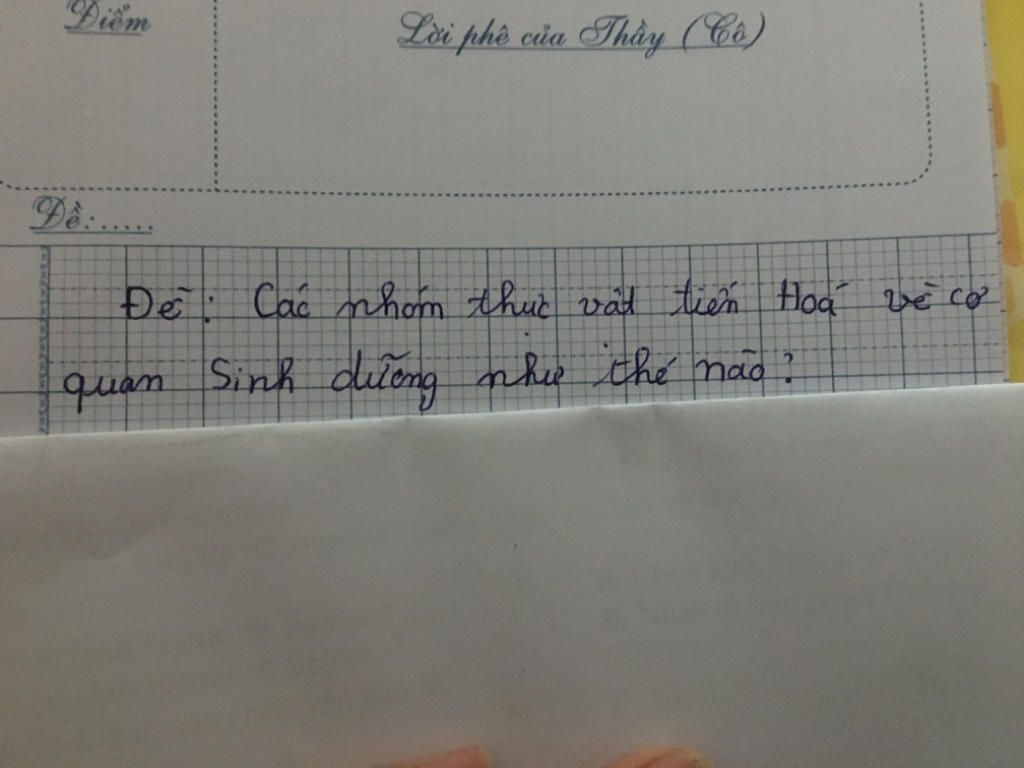 Điểm
Lời phê của Thầy (Cô)
Đề:......
Đề: Các nhóm thực vật tiến Hoá về cơ
quan Sinh dưỡng như thế nào?